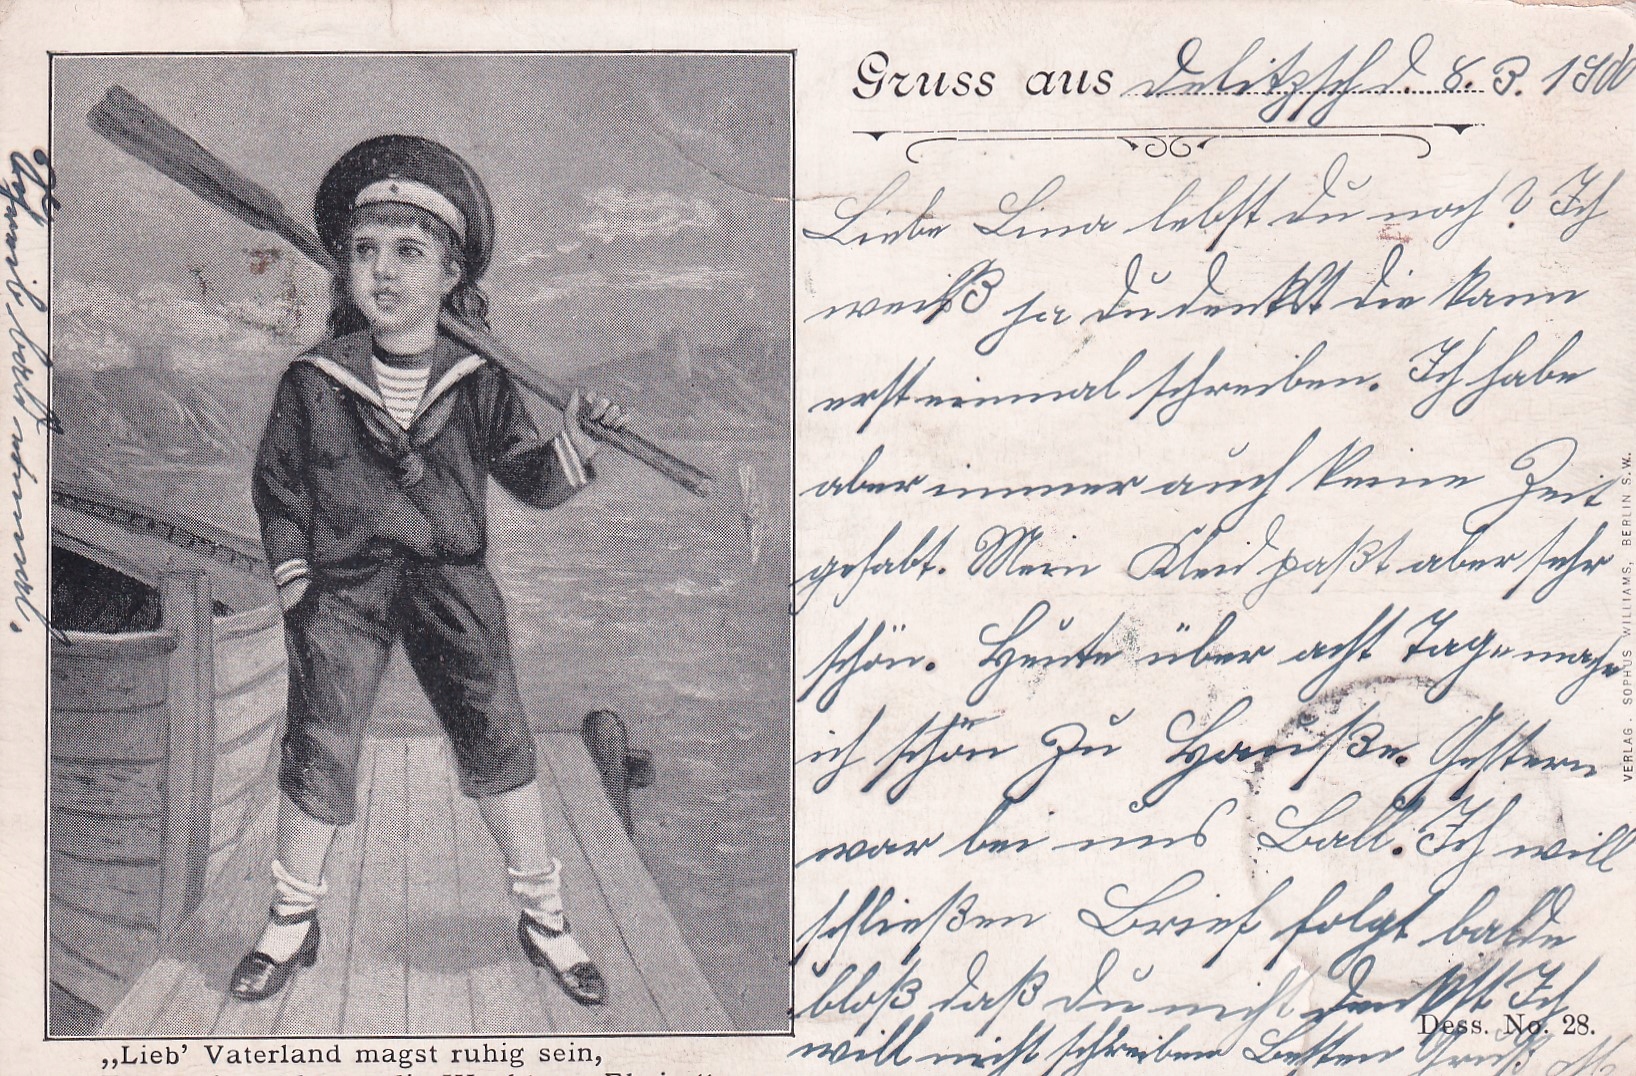 Gruss aus Delitzsch d. 8. 3. 1900
Liebe Lina lebst du noch? Ich
weiß ja du denkst die kann
erst einmal schreiben. Ich habe
aber immer auch keine Zeit
gehabt. Mein Kleid paßt aber sehr
schön. Heute über acht Tage mache
ich schön zu Hauße. Gestern
war bei uns Ball. Ich will
schließen Brief folgt balde
bloß daß du nicht denkst Ich
will nicht schreiben Besten Gruß
Schreib bald einmal.
„Lieb' Vaterland magst ruhig sein,
Dess. No. 28.
VERLAG. SOPHUS WILLIAMS, BERLIN S.W.